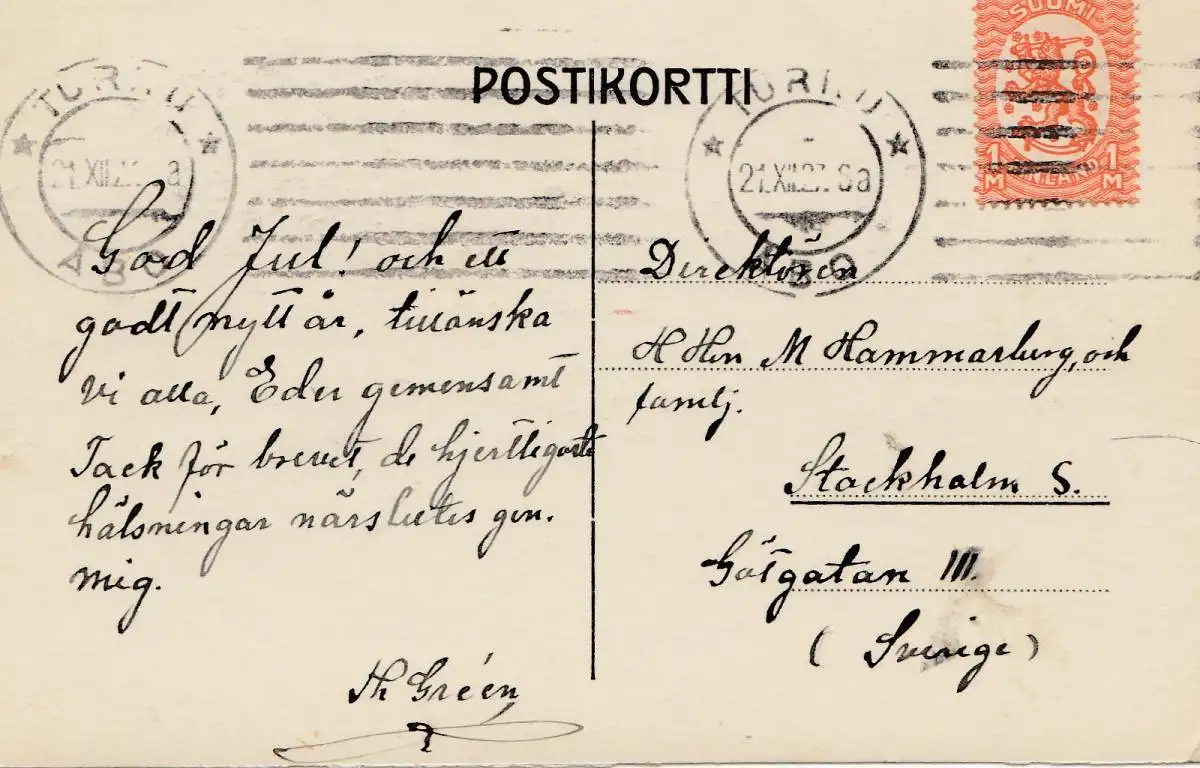 POSTIKORTTI
SUOMI
1 M
1 M
FINLAND
TURKU
21.XII.27. 8a
ÅBO
TURKU
21.XII.27. 8a
ÅBO
God Jul! och ett
godt nytt år, tillönska
vi alla, Eder gemensamt
Tack för brevet, de hjertligaste
hälsningar närslutes gen.
mig.
Th Gréen
Direktören
H Hrn M Hammarberg, och
familj.
Stockholm S.
Götgatan 111.
(Sverige)